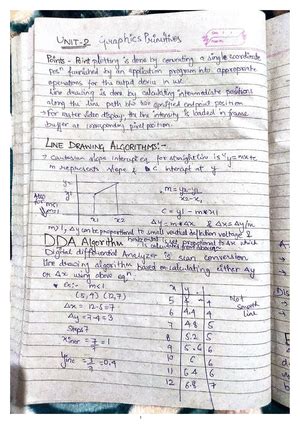 UNIT-2 Graphics Primitives
Points - Point plotting is done by converting a single coordinate
posn furnished by an application program into appropriate
operations for the output device in use
Line drawing is done by calculating intermediate positions
along the line path b/w two specified endpoint position
→ For raster video display the line intensity is loaded in frame
buffer at corresponding pixel position.
LINE DRAWING ALGORITHMS:-
→ Cartesian slope intercept eq. for straight line is "y=mx+c
m represents slope & c intercept at y
y2
y1
x1 x2
m<1
m>1
m = y2-y1
x2-x1
c = y1 - m*x1
Δy = m*Δx & Δx = Δy/m
m>1, Δy can be proportional to small vertical deflection voltage &
horizontal is set proportional to Δx which
is calculated from above eqn
DDA Algorithm
Digital differential Analyzer is scan conversion
line drawing algorithm based on calculating either Δy
or Δx using above eqn.
ex:- m<1
(5,4) (12,7)
Δx = 12-5=7
Δy = 7-4=3
Steps 7
xincr = 7/7 = 1
yinc = 3/7 = 0.4
x y
5 4
6 4.4 4
7 4.8 5
8 5.2 5
9 5.6 6
10 6 6
11 6.4 6
12 6.8 7
Not
smooth
line